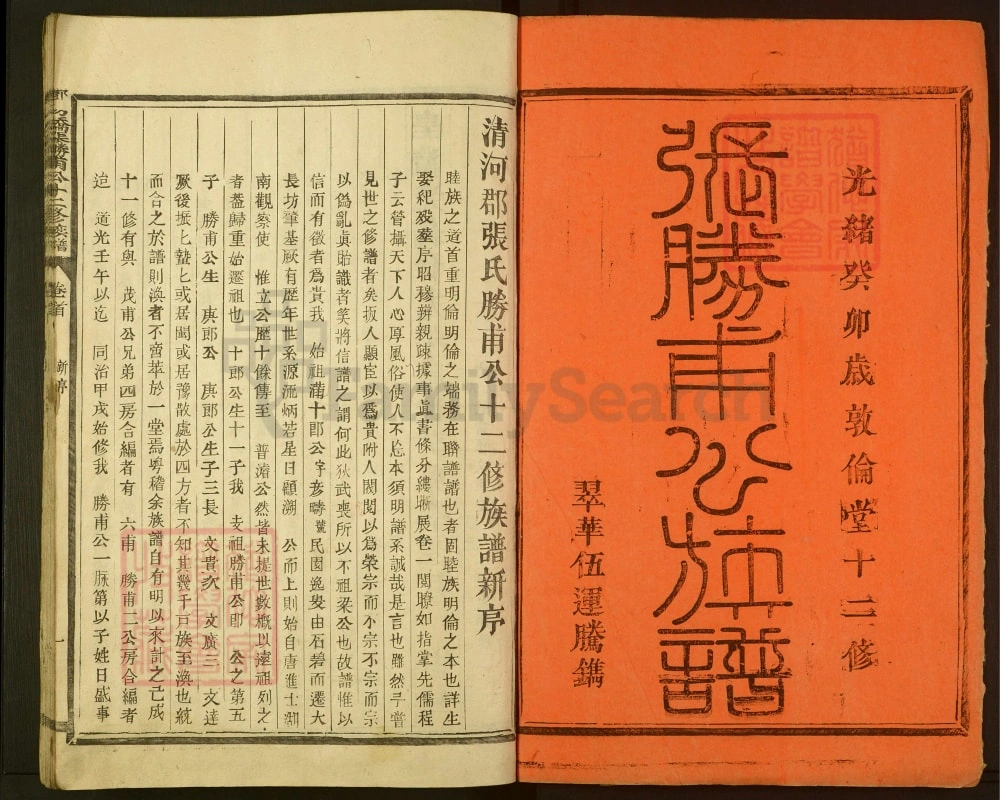 光緒癸卯歲敦倫堂十二修
張勝甫公族譜
翠華伍運騰鐫
清河郡張氏勝甫公十二修族譜新序
睦族之道首重明倫明倫之端務在聯譜譜也者固睦族明倫之本也詳生
娶紀歿塟序昭穆辨親疎據事眞書條分縷晰展卷一閱瞭如指掌先儒程
子云管攝天下人心厚風俗使人不忘本須明譜系誠哉是言也雖然予嘗
見世之修譜者矣扳人顯宦以爲貴附人閥閱以爲榮宗而不宗不宗而宗
以僞亂眞貽識者笑將信譜之謂何此狄武襄所以不祖梁公也故譜惟以
信而有徵者爲貴我 始祖蒲十郎公字彥疇號民園逸叟由石碧而遷大
長坊肇基厥有歷年世系源流炳若星日顧溯 公而上則始自唐進士湖
南觀察使 惟立公歷十餘傳至 普濟公然皆未提世數槪以遠祖列之
者蓋歸重始遷祖也 十郎公生十一子我 支祖勝甫公即 公之第五
子 勝甫公生 庚郎公 庚郎公生子三長 文貴次 文廣三 文達
厥後振振蟄蟄或居閩或居豫散處於四方者不知其幾千戸族至渙也統
而合之於譜則渙者不啻萃於一堂焉粤稽余族譜自有明以來計之已成
十一修有與 茂甫公兄弟四房合編者有 六甫 勝甫二公房合編者
迨 道光壬午以迄 同治甲戌始修我 勝甫公一脈第以子姓日盛事
張勝甫公十二修族譜 卷首 新序 一
FamilySearch